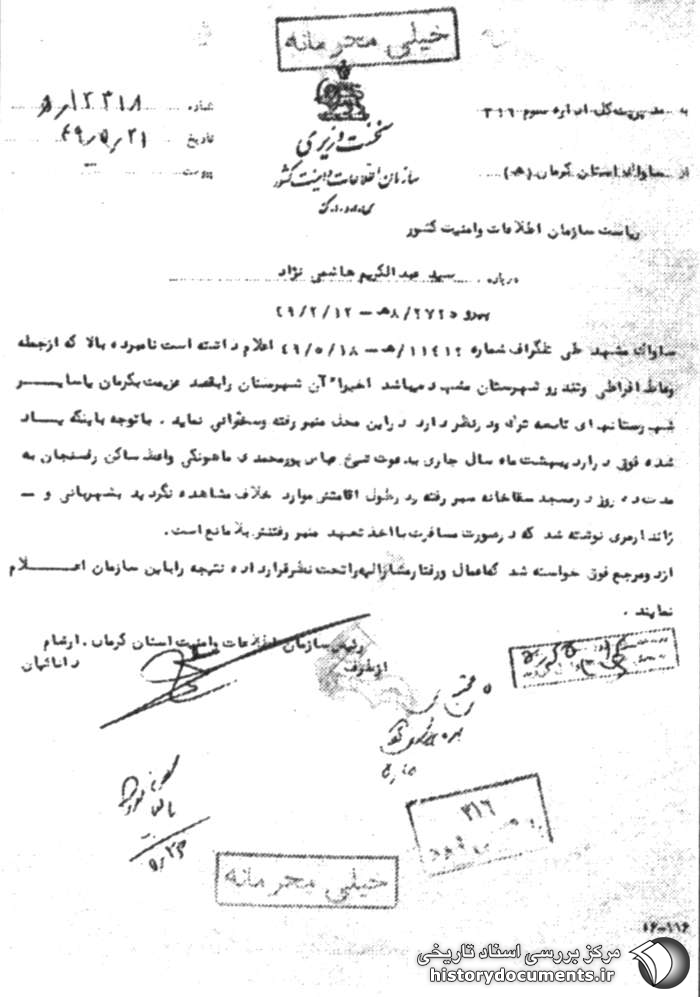 خیلی محرمانه
به مدیریت کل اداره سوم ۳۱۶
شماره ۵/۱۲۳۱۸
نخست وزیری
از ساواک استان کرمان (۸ﻫ)
تاریخ ۴۹/۵/۲۱
سازمان اطلاعات و امنیت کشور
پیوست
س.ا.و.ا.ک
ریاست سازمان اطلاعات وامنیت کشور
درباره سید عبدالکریم هاشمی نژاد
پیرو ۸/۲۷۲۵ﻫ - ۴۹/۲/۱۲
ساواک مشهد طی تلگراف شماره ۱۱۴۱۲/ﻫ - ۴۹/۵/۱۸ اعلام داشته است نامبرده بالا که ازجمله
وعاظ افراطی وتندرو شهرستان مشهد میباشد اخیرا" آن شهرستان رابقصد عزیمت بکرمان یاسایر
شهرستانهای تابعه ترک ودرنظر دارد دراین محل منبر رفته وسخنرانی نماید . باتوجه باینکه یاد
شده فوق درارد یبهشت ماه سال جاری بدعوت شیخ عباس پورمحمدی ماهونکی واعظ ساکن رفسنجان به
مدت ده روز درمسجد سقاخانه منبر رفته ردرطول اقامتش موارد خلاف مشاهده نگردید بشهربانی و -
ژاندارمری نوشته شد که درصورت مسافرت بااخذ تعهد منبر رفتنش بلامانع است.
ازدومرجع فوق خواسته شد که اعمال ورفتارمشارالیه راتحت نظرقرارداده نتیجه راباین سازمان اعلام
نمایند .
رئیس سازمان اطلاعات وامنیت استان کرمان . ارشام
ازطرف دانائیان
۳۱۶
خیلی محرمانه
۱۶-۱۱۶
مرکز بررسی اسناد تاریخی
historydocuments.ir